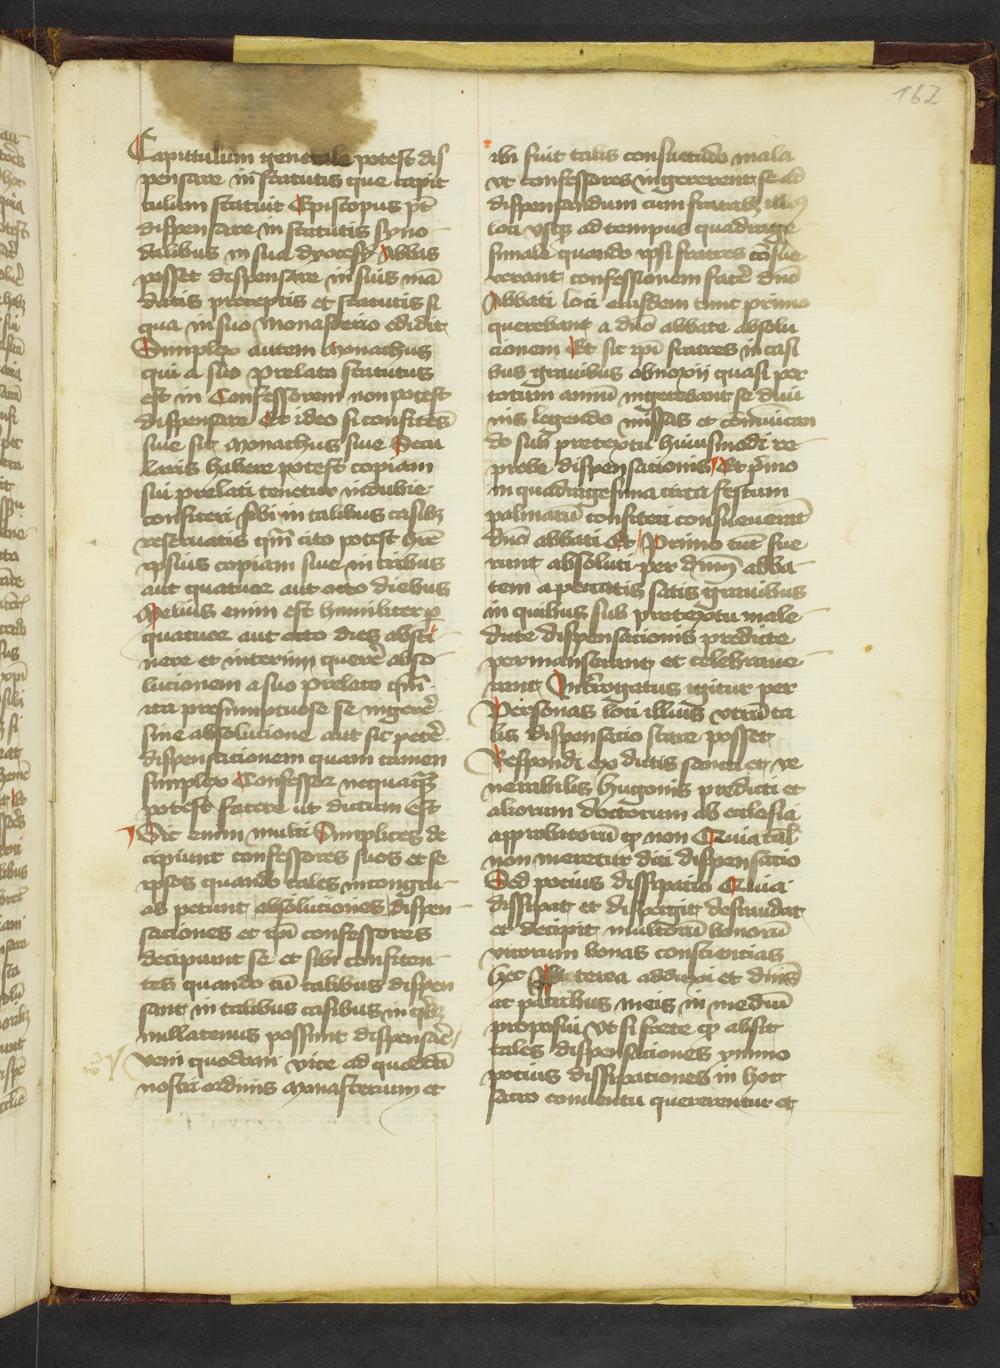 162
Capittulum generale potest dis
pensare in statutis que capit
tulum statuit Episcopus pt̄
dispensare in statutis syno
dalibus in sua dyocesi Abbas
posset dispensare in suis mā
datis preceptis et statutis si
qua in suo Monasterio edidit
Simplex autem Monachus
qui a suo prelato statutus
est in Confessorem non potest
dispensare Et ideo si confitēs
siue sit Monachus siue Secu
laris habere potest copiam
sui prelati tenetur indubie
confiteri sibi in talibus casibꝫ
reseruatis qm̄ cito potest hr̄e
ipsius copiam siue in tribus
aut quatuor aut octo diebus
Melius enim est humiliter ꝑ
quatuor aut octo dies absti
nere et interim querē abso
lucionem a suo prelato qm̄
ita presumptuose se ingerē
sine absolucione aut sic petē
dispensacionem quam tamen
simplex Confessor nequaqͣꝫ
potest facere ut dictum Est
Sic enim multi Simplices de
cipiunt confessores suos et se
ipsos quando tales incongru
as petunt absoluciones dispen
saciones et ipī confessores
decipiunt se et sibi confiten
tes quando cū talibus dispen
sant in talibus casibus in qͥbꝫ
nullatenus possunt dispensaē
veni quodam vice ad quoddā
nostri ordinis Monasterium et
ibi fuit talis consuetudo mala
vt confessores ingererent se ad
dispensandum cum fratribꝫ illius
loci vsqꝫ ad tempus quadrage
simale quando ipsi fratres cōsue
verant confessionem facē dnō
Abbati loci eiusdem tunc primo
querebant a dnō abbate absolu
cionem Et sic ipī fratres in casi
bus grauibus obnoxii quasi per
totum annū ingerebant se diui
nis legendo missas et cōmunican
do sub pretextu huiusmodi re
probe dispensacionis Et pͥmo
in quadragesima circa festum
palmarū confiteri consueuerāt
dnō abbati Et Primo tūc fue
runt absoluti per dnm̄ abba
tem a peccatis satis grauibus
in quibus sub pretextu male
dicte dispensacionis predicte
permanserant et celebraue
rant Int̄rogatus igitur per
Personas loci illius vtrū ta
lis dispensacio stare posset
Respondi ex dictis sancti et ve
nerabilis Hugonis predicti et
aliorum doctorum ab ecclesia
approbatorū ꝙ non Quia tal̄
non meretur dici dispensacio
Sed pocius dissipatio Quia
dissipat et dispergit defraudat
et decipit multorū bonorū
virorum bonas consciencias
hec Preterea adduxi et dnīs
ac patribus meis in mediū
proposui vt si scirēte ꝙ absit
tales dispensaciones ymmo
pocius dissipaciones in hoc
sacro conuentu quererentur et